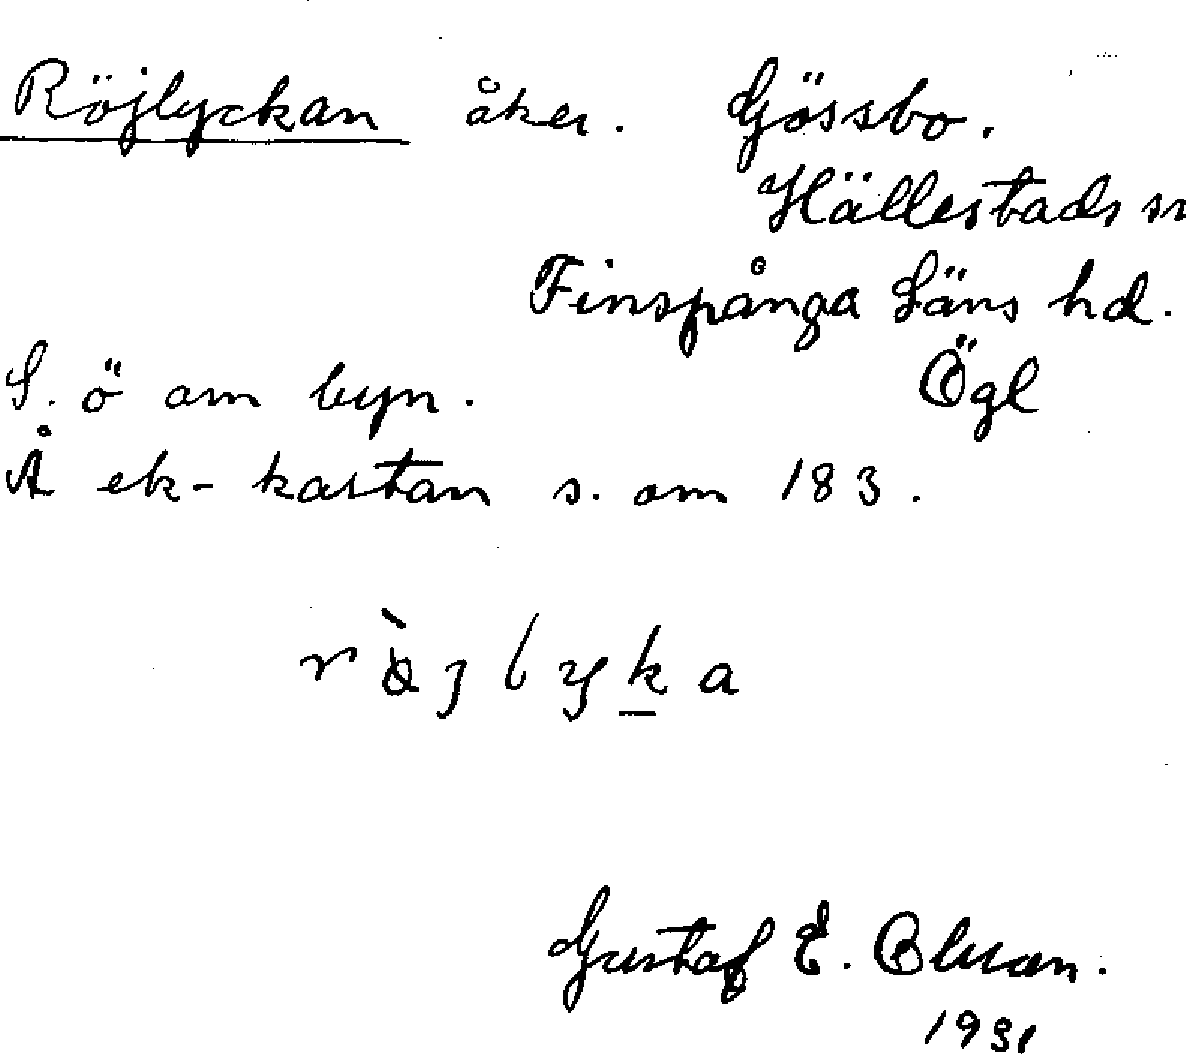 Röjlyckan åker. Gössbo.
Hällestads sn
Finspånga Läns hd.
S. ö om byn. Ögl
Å ek-kastan s. om 183.
Gustaf E.
1931